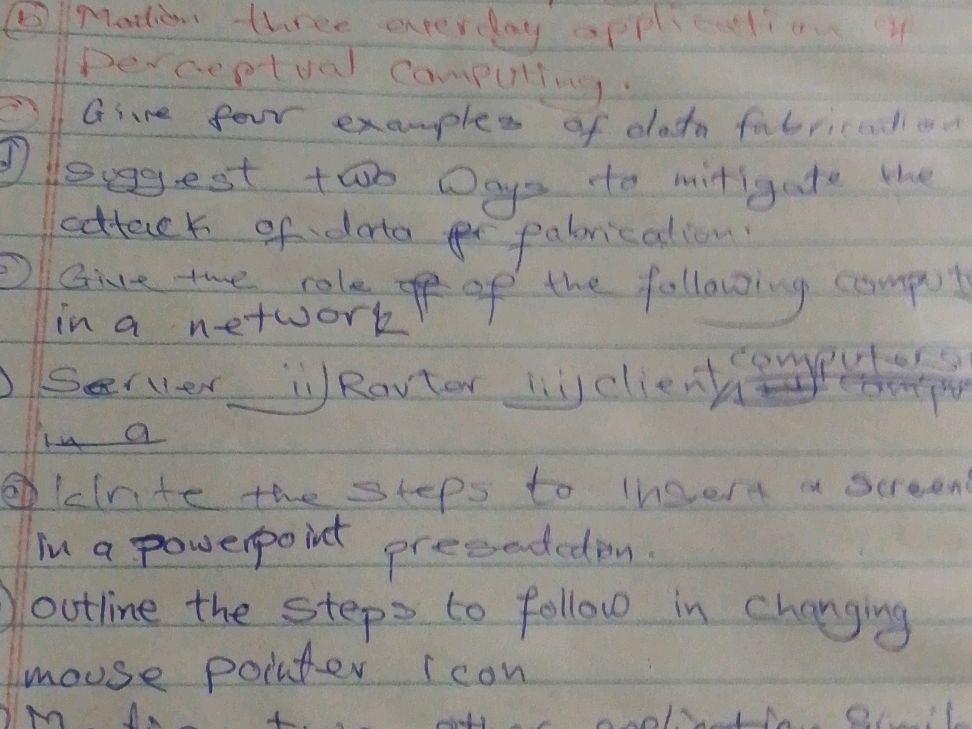 (b) Mention three everday application of
Perceptual Computing.
Give four examples of data fabrication
Suggest two Ways to mitigate the
attack of data fabrication.
Give the role of the following comput
in a network
Server ii) Router iii) client computers
in a
Write the steps to insert a screen
in a powerpoint presentation.
outline the steps to follow in changing
mouse pointer icon